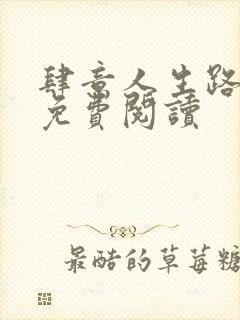 肆意人生路
免費閱讀
最酷的草莓糖